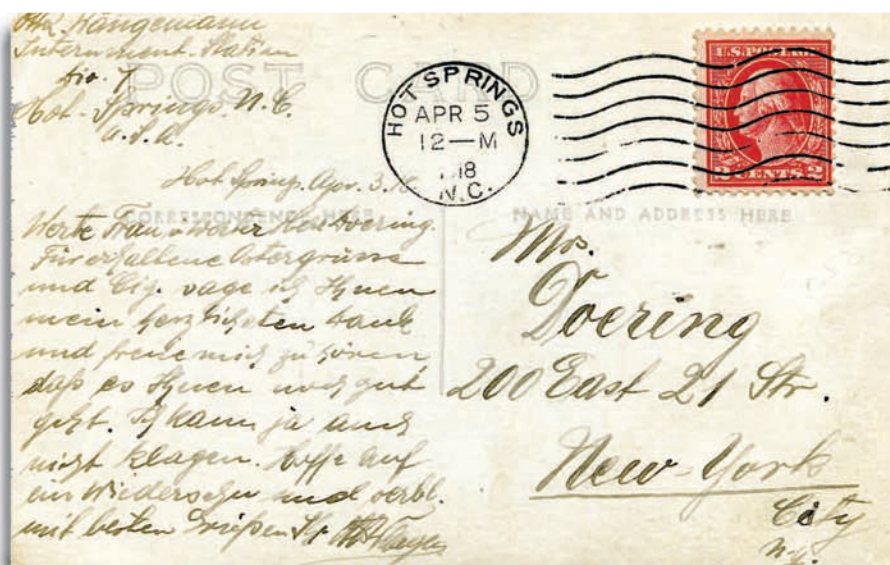 Otto Hängemann
Internment Station
No. 1
Hot-Springs N.C.
U.S.A.
POST CARD
HOT SPRINGS
APR 5
12—M
1918
N.C.
U.S. POSTAGE
2 CENTS 2
Hot Springs, Apr. 3. 18.
CORRESPONDENCE HERE
NAME AND ADDRESS HERE
Werte Frau u. werter Herr Doering.
Für erhaltene Ostergrüsse
und Cig. sage ich Ihnen
mein herzlichsten Dank
und freue mich zu hören,
daß es Ihnen noch gut
geht. Ich kann ja auch
nicht klagen. Hoffe auf
ein Wiedersehn und verbl.
mit besten Grüßen Ihr
Mrs.
Doering
200 East 21 Str.
New-York
City
N.Y.